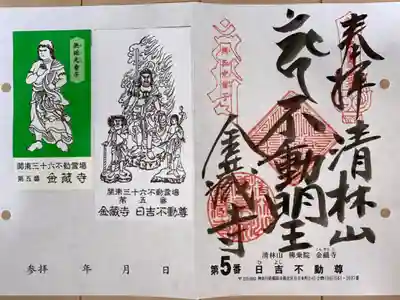 無垢光童子
関東三十六不動霊場
第五番 金蔵寺
関東三十六不動霊場
第五番
金蔵寺 日吉不動尊
参拝 年 月 日
奉拝
清林山
不動明王
金蔵寺
清林山 佛乗院 金蔵寺
第5番 日吉不動尊